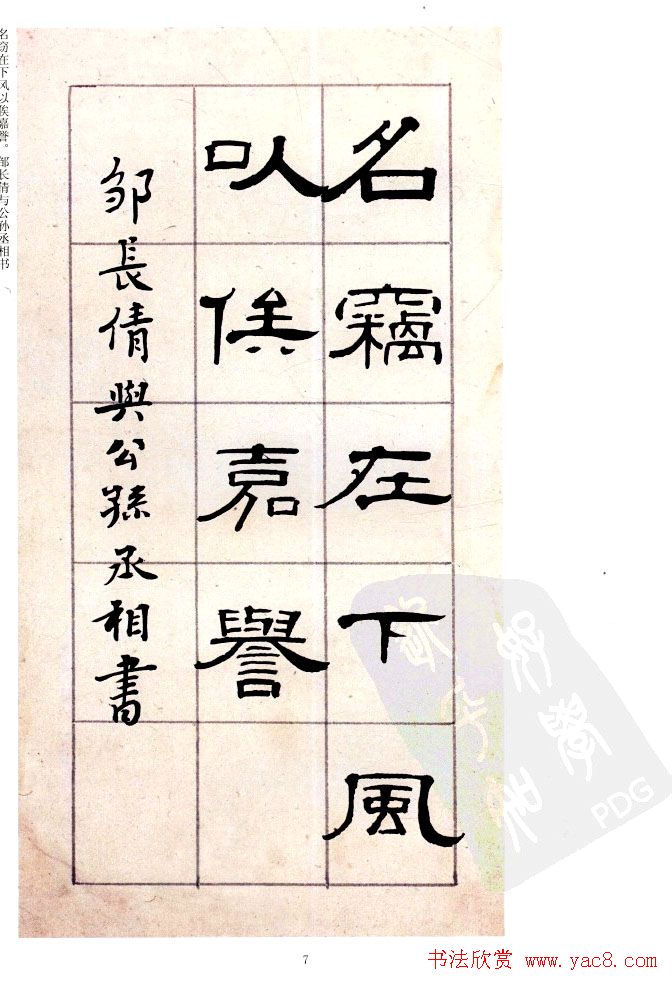 名竊在下風
㕥俟嘉譽
邹長倩與公孫丞相書
名窃在下风以俟嘉誉。 邹长倩与公孙丞相书
PDG
7
书法欣赏 www.yac8.com